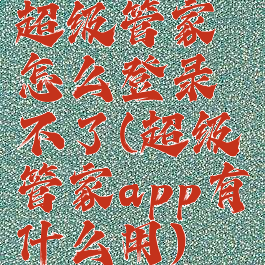 超级管家
怎么登录
不了(超级
管家app有
什么用)